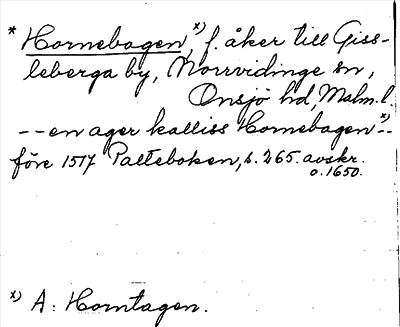 * Hornebagen,ˣ⁾ f. åker till Giss-
leberga by, Norrvidinge sn,
Onsjö hd, Malm. l.
-- en ager kalliss Hornebagenˣ⁾--
före 1517 Palteboken, s. 265. avskr.
o. 1650.
ˣ⁾ A: Horntagen.